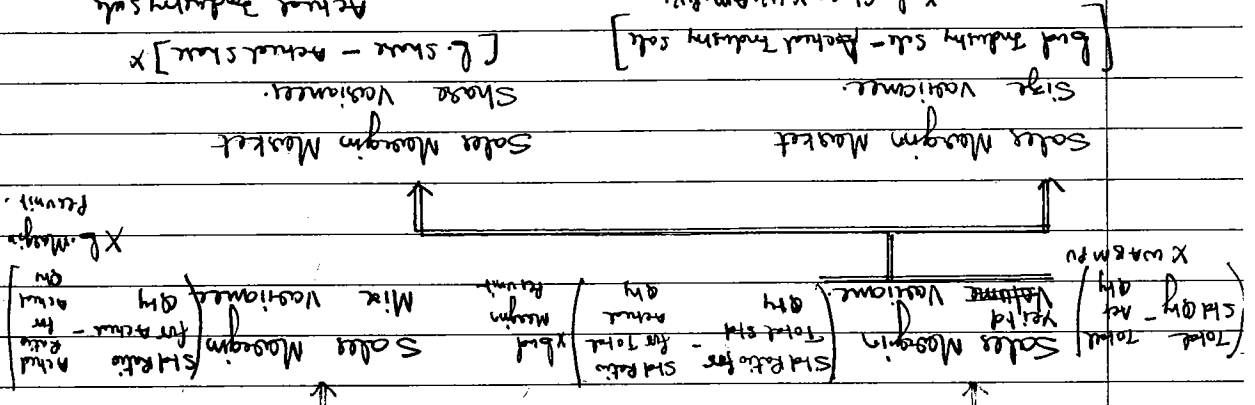 (Total Std Qty - Total Act Qty) X WABMPU
Sales Margin Yeild Variance (Std Ratio for Total Std Qty - Std Ratio for Total Actual Qty) X bud Margin Per unit
Sales Margin Mix Variance (Std Ratio for Actual Qty - Actual Ratio for Actual Qty) X B. Margin Per unit.
Sales Margin Market Size Variance.
Sales Margin Market Share Variances.
[bud Industry Sale - Actual Industry sale]
[B. Share - Actual Share] X
Actual Industry sale